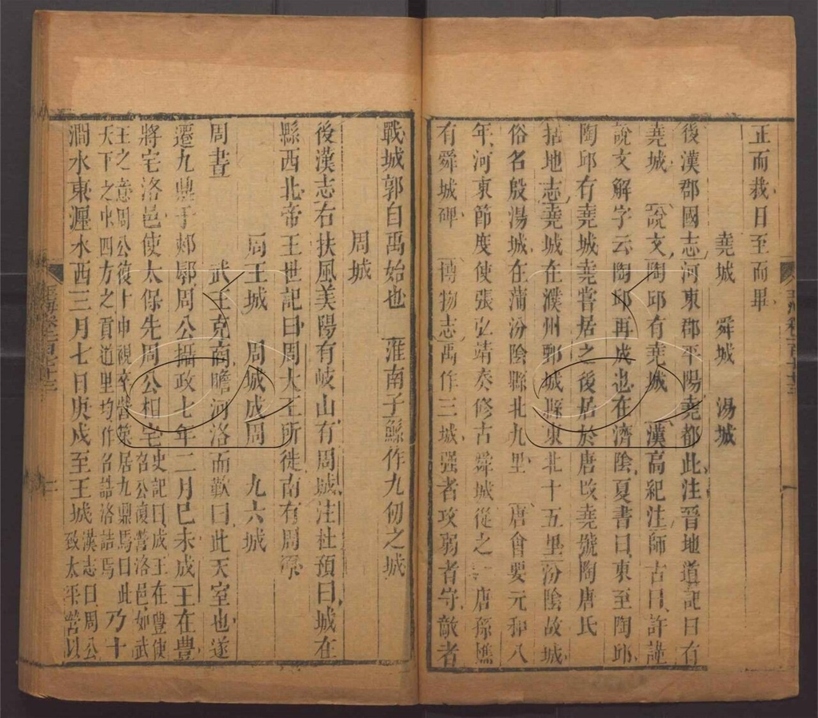 正而栽日至而畢
堯城　舜城　湯城
後漢郡國志河東郡平陽堯都此注晉地道記曰有
堯城　說文陶邱有堯城　漢高紀注師古曰許謹
說文解字云陶邱再成也在濟陰夏書曰東至陶邱
陶邱有堯城堯嘗居之後居於唐故堯號陶唐氏
括地志堯城在濮州鄄城縣東北十五里汾陰故城
俗名殷湯城在蒲汾陰縣北九里　唐會要元和八
年河東節度使張弘靖奏修古舜城從之　唐孫樵
有舜城碑　博物志禹作三城强者攻弱者守敵者
戰城郭自禹始也　淮南子鯀作九仞之城
周城
後漢志右扶風美陽有岐山有周城注杜預曰城在
縣西北帝王世記曰周大王所徙南有周原
周王城　周城成周　九六城
周書　武王克商瞻河洛而歎曰此天室也遂
遷九鼎于郟鄏周公攝政七年二月巳未成王在豊
將宅洛邑使太保先周公相宅史記曰成王在豊使召公復營洛邑如武
王之意周公復卜申視卒營築居九鼎焉曰此天下之中四方之貢道里均作召誥洛誥焉乃十
澗水東瀍水西三月七日庚戌至王城漢志曰周公致太平營以